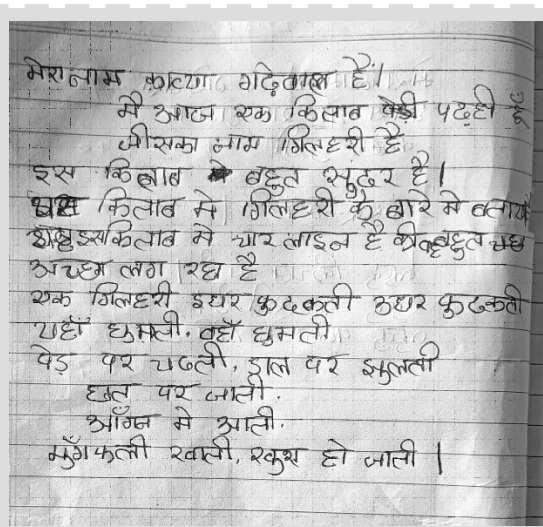 मेरा नाम काव्या गढ़ेवाल है।
मै आज एक किताब पढ़ी हूँ
जीसका नाम गिलहरी है
इस किताब बहुत सुंदर है।
किताब मे गिलहरी के बारे मे बताया
इसकिताब मे चार लाइन है बहुत
अच्छा लग रहा है
एक गिलहरी इधर कुदकती उधर कुदकती
यहाँ घुमती. वहाँ घुमती
पेड़ पर चढती, डाल पर झुलती
छत पर जाती.
आँगन मे आती.
मुँगफली खाती, खुश हो जाती |